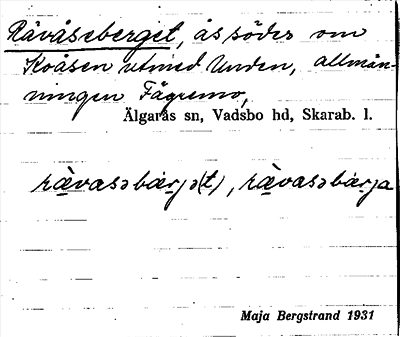 Rävåseberget, ås söder om
Koåsen utmed Unden, allmän-
ningen Fägremo,
Älgarås sn, Vadsbo hd, Skarab. l.
rä̀vasəbär̥jə(t), rä̀vasəbär̥ja
Maja Bergstrand 1931